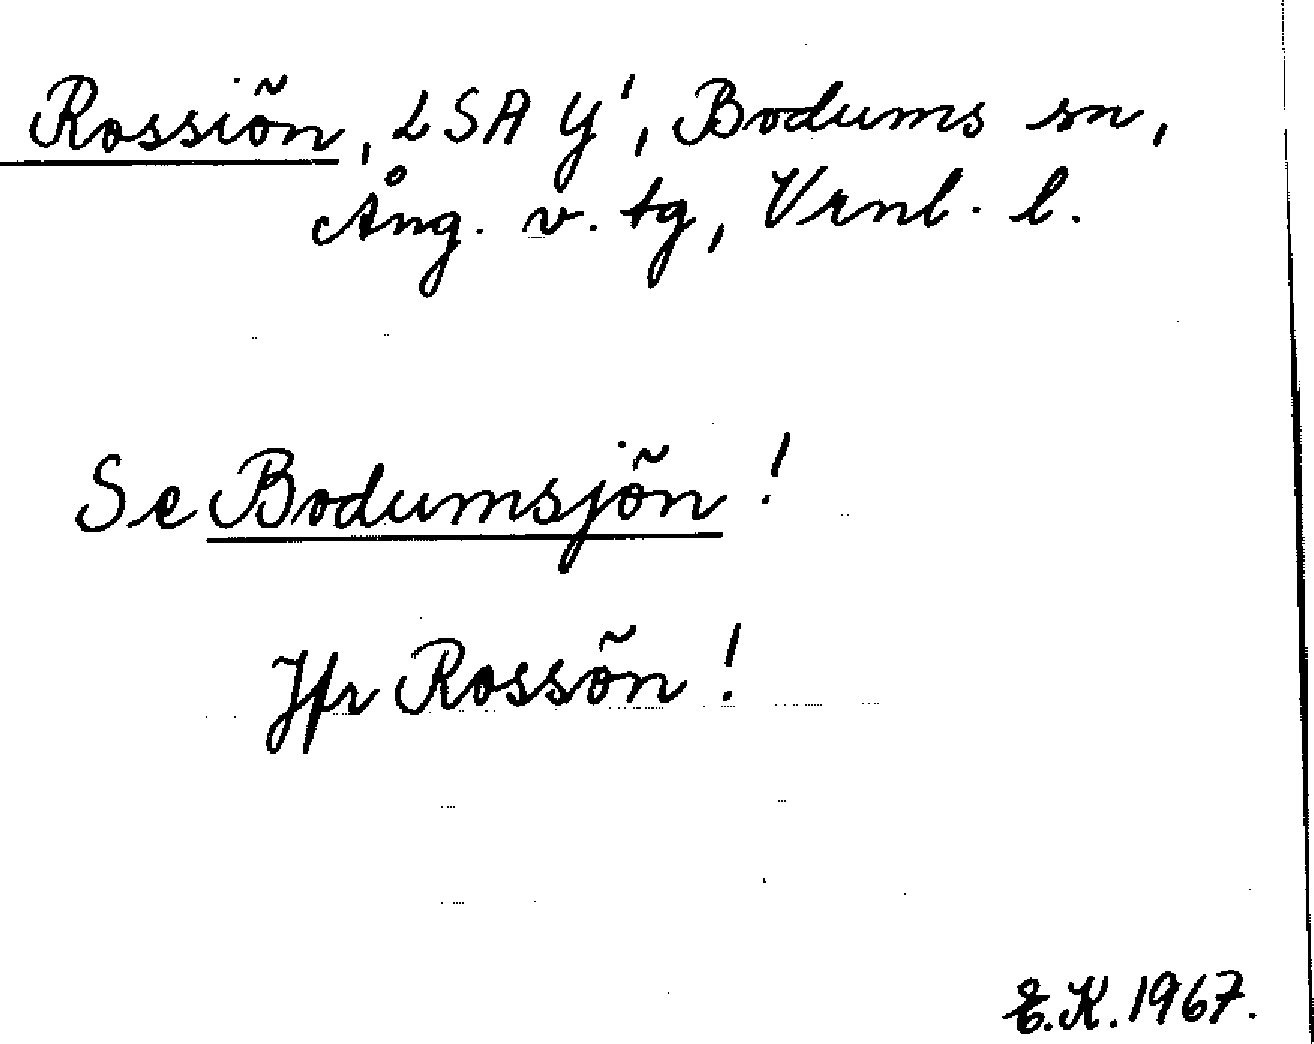 Rossiön, LSA Y', Bodums sn,
Ång. v. tg, Vrnl. l.
Se Bodumsjön!
Jfr Rossön!
E.K. 1967.